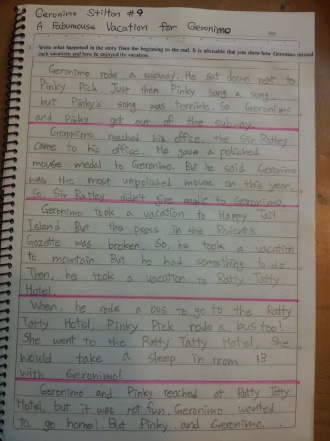 Geronimo Stilton #9
A Fabumouse Vacation for Geronimo
No
1. Write what happened in the story from the beginning to the end. It is advisable that you show how Geronimo missed
each vacations and how he enjoyed the vacation.
Geronimo rode a subway. He sat down next to
Pinky Pick. Just then Pinky sang a song,
but Pinky's song was terrible. So Geronimo
and Pinky got out of the subway.
Geronimo reached his office, the Sir Ratley
came to his office. He gave a polished
mouse medal to Geronimo. But he said Geronimo
was the most unpolished mouse on this year.
So Sir Ratley didn't give medle to Geronimo.
Geronimo took a vacation to Happy Tail
Island. But the press in the Rodent's
Gazette was broken. So, he took a vacation
to mountain. But he had something to do.
Then, he took a vacation to Ratty Tatty
Hotel.
When, he rode a bus to go to the Ratty
Tatty Hotel, Pinky Pick rode a bus too!
She went to the Ratty Tatty Hotel. She
would take a sleep in room 13
with Geronimo!
Geronimo and Pinky reached at Ratty Tatty
Hotel, but it was not fun. Geronimo wanted
to go home. But Pinky and Geronimo